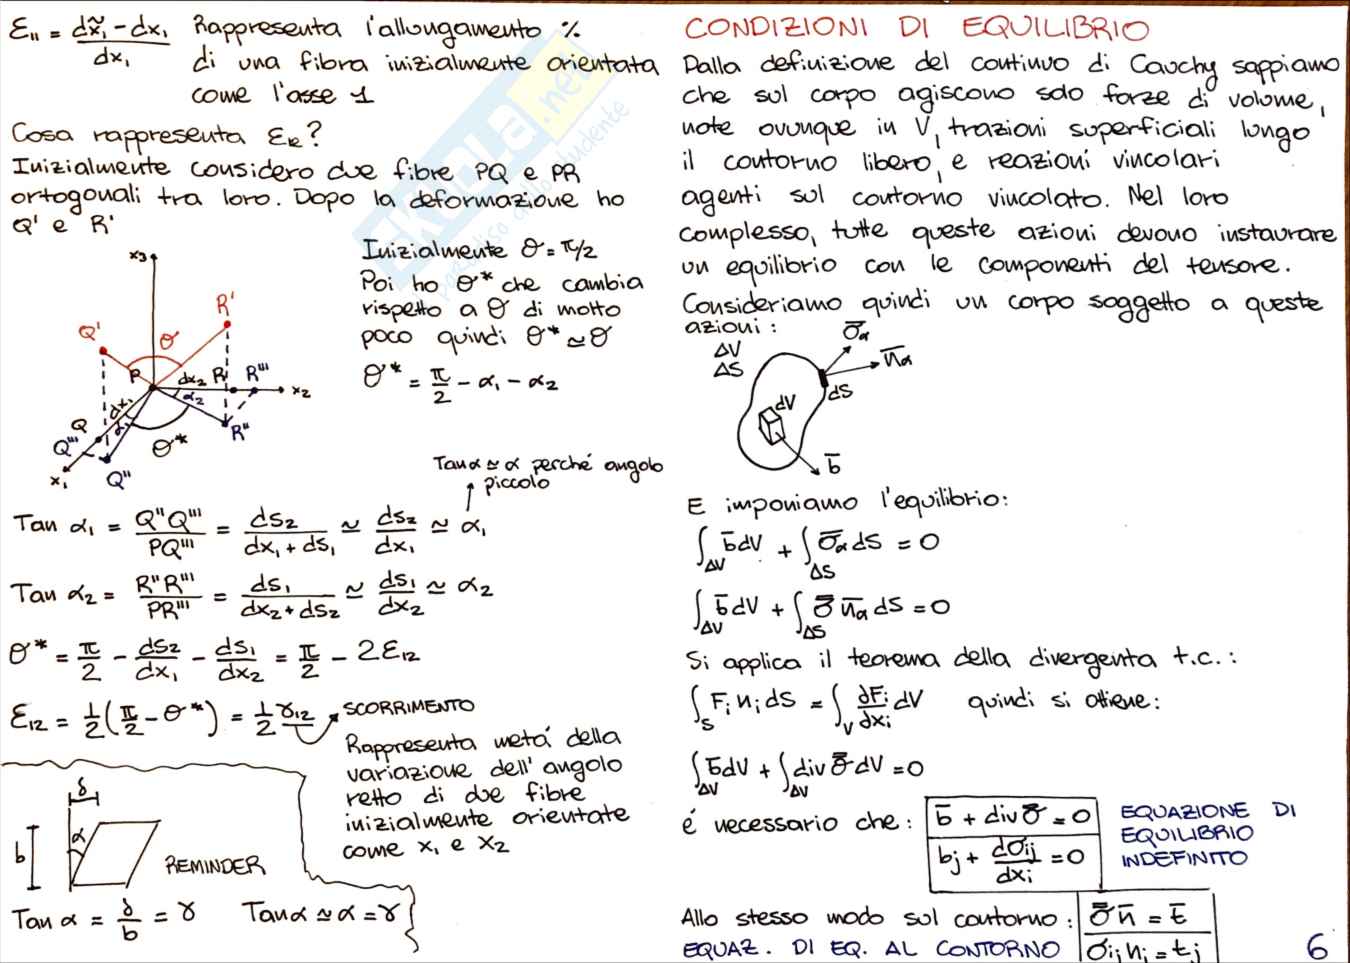 ε₁₁ = (dx̃₁ - dx₁)/dx₁ Rappresenta l'allungamento %
di una fibra inizialmente orientata
come l'asse 1
Cosa rappresenta ε₁₂?
Inizialmente considero due fibre PQ e PR
ortogonali tra loro. Dopo la deformazione ho
Q' e R'
Inizialmente θ = π/2
Poi ho θ* che cambia
rispetto a θ di molto
poco quindi θ* ≃ θ
θ* = π/2 - α₁ - α₂
x₃
R'
Q'
θ
P
dx₂ R R'''
x₂
α₂
dx₁
α₁
Q
R''
Q'''
θ*
x₁
Q''
Tanα ≃ α perché angolo
piccolo
Tan α₁ = Q''Q'''/PQ''' = ds₂/(dx₁ + ds₁) ≃ ds₂/dx₁ ≃ α₁
Tan α₂ = R''R'''/PR''' = ds₁/(dx₂ + ds₂) ≃ ds₁/dx₂ ≃ α₂
θ* = π/2 - ds₂/dx₁ - ds₁/dx₂ = π/2 - 2ε₁₂
ε₁₂ = 1/2 (π/2 - θ*) = 1/2 γ₁₂ SCORRIMENTO
Rappresenta metà della
variazione dell'angolo
retto di due fibre
inizialmente orientate
come x₁ e x₂
δ
b
α
REMINDER
Tan α = δ/b = γ Tanα ≃ α = γ
CONDIZIONI DI EQUILIBRIO
Dalla definizione del continuo di Cauchy sappiamo
che sul corpo agiscono solo forze di volume,
note ovunque in V, trazioni superficiali lungo
il contorno libero, e reazioni vincolari
agenti sul contorno vincolato. Nel loro
complesso, tutte queste azioni devono instaurare
un equilibrio con le componenti del tensore.
Consideriamo quindi un corpo soggetto a queste
azioni:
ΔV
ΔS
σ̅α
n̅α
dS
dV
b̅
E imponiamo l'equilibrio:
∫ΔV b̅ dV + ∫ΔS σ̅α dS = 0
∫ΔV b̅ dV + ∫ΔS σ̿ n̅α dS = 0
Si applica il teorema della divergenta t.c.:
∫S Fᵢ nᵢ dS = ∫V ∂Fᵢ/∂xᵢ dV quindi si ottiene:
∫ΔV b̅ dV + ∫ΔV div σ̿ dV = 0
é necessario che: b̅ + div σ̿ = 0
bj + dσij/dxi = 0
EQUAZIONE DI
EQUILIBRIO
INDEFINITO
Allo stesso modo sul contorno: σ̿ n̅ = t̅
EQUAZ. DI EQ. AL CONTORNO σij ni = tj
6
SKUOLA.net
il paradiso dello studente